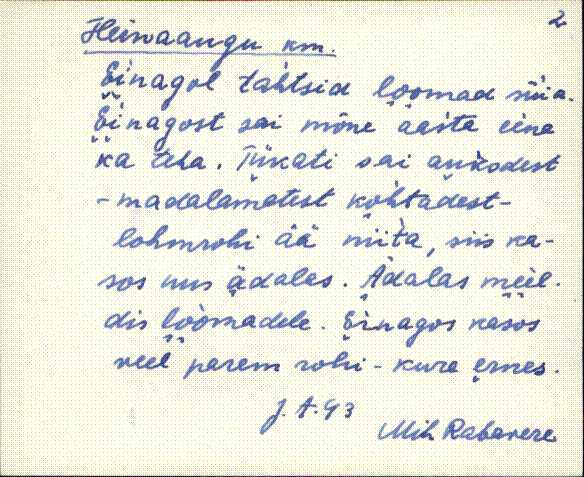 2
Heinaaugu km.
Einagol tahtsid loomad süia.
Einagost sai mõne aasta eina
ka teha. Tükati sai aukodest
- madalamatest kohtadest -
lohmrohi ää niita, siis ka-
sos uus ädalas. Ädalas meel-
dis loomadele. Einagos kasos
veel parem rohi - kure ernes.
J. A. 93
Mih Rabavere